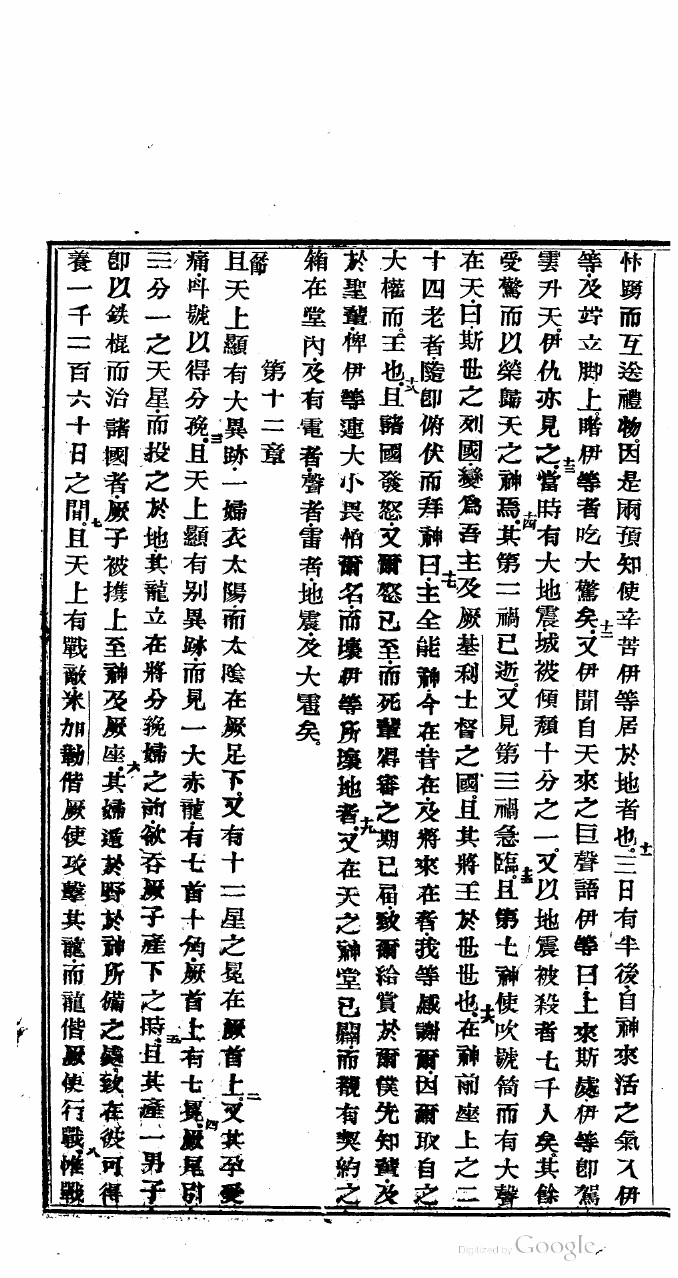 忭躍而互送禮物因是兩預知使辛苦伊等居於地者也十一三日有半後自神來活之氣入伊
等及竚立脚上睹伊等者吃大驚矣十二又伊聞自天來之巨聲語伊等曰上來斯處伊等卽駕
雲升天伊仇亦見之十三當時有大地震城被傾頹十分之一又以地震被殺者七千人矣其餘
受驚而以榮歸天之神焉十四其第二禍已逝又見第三禍急臨十五且第七神使吹號筒而有大聲
在天曰斯世之列國變爲吾主及厥基利士督之國且其將王於世世也十六在神前座上之二
十四老者隨卽俯伏而拜神曰十七主全能神今在昔在及將來在者我等感謝爾因爾取自之
大權而王也十八且諸國發怒又爾怒已至而死輩得審之期已屆致爾給賞於爾僕先知輩及
於聖輩俾伊等連大小畏怕爾名而壞伊等所壞地者十九又在天之神堂已闢而觀有契約之
箱在堂內及有電者聲者雷者地震及大雹矣
第十二章
一節且天上顯有大異跡一婦衣太陽而太陰在厥足下又有十二星之冕在厥首上二又其孕憂
痛呌號以得分娩三且天上顯有別異跡而見一大赤龍有七首十角厥首上有七冕四厥尾引
三分一之天星而投之於地其龍立在將分娩婦之前欲吞厥子產下之時五且其產一男子
卽以鉄棍而治諸國者厥子被携上至神及厥座六其婦遁於野於神所備之處致在彼可得
養一千二百六十日之間七且天上有戰敵米加勒偕厥使攻擊其龍而龍偕厥使行戰八惟戰
Digitized by Google